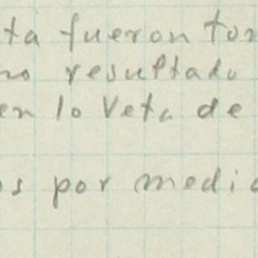 ta fueron tor
no resultado
en lo Veta de
os por medio